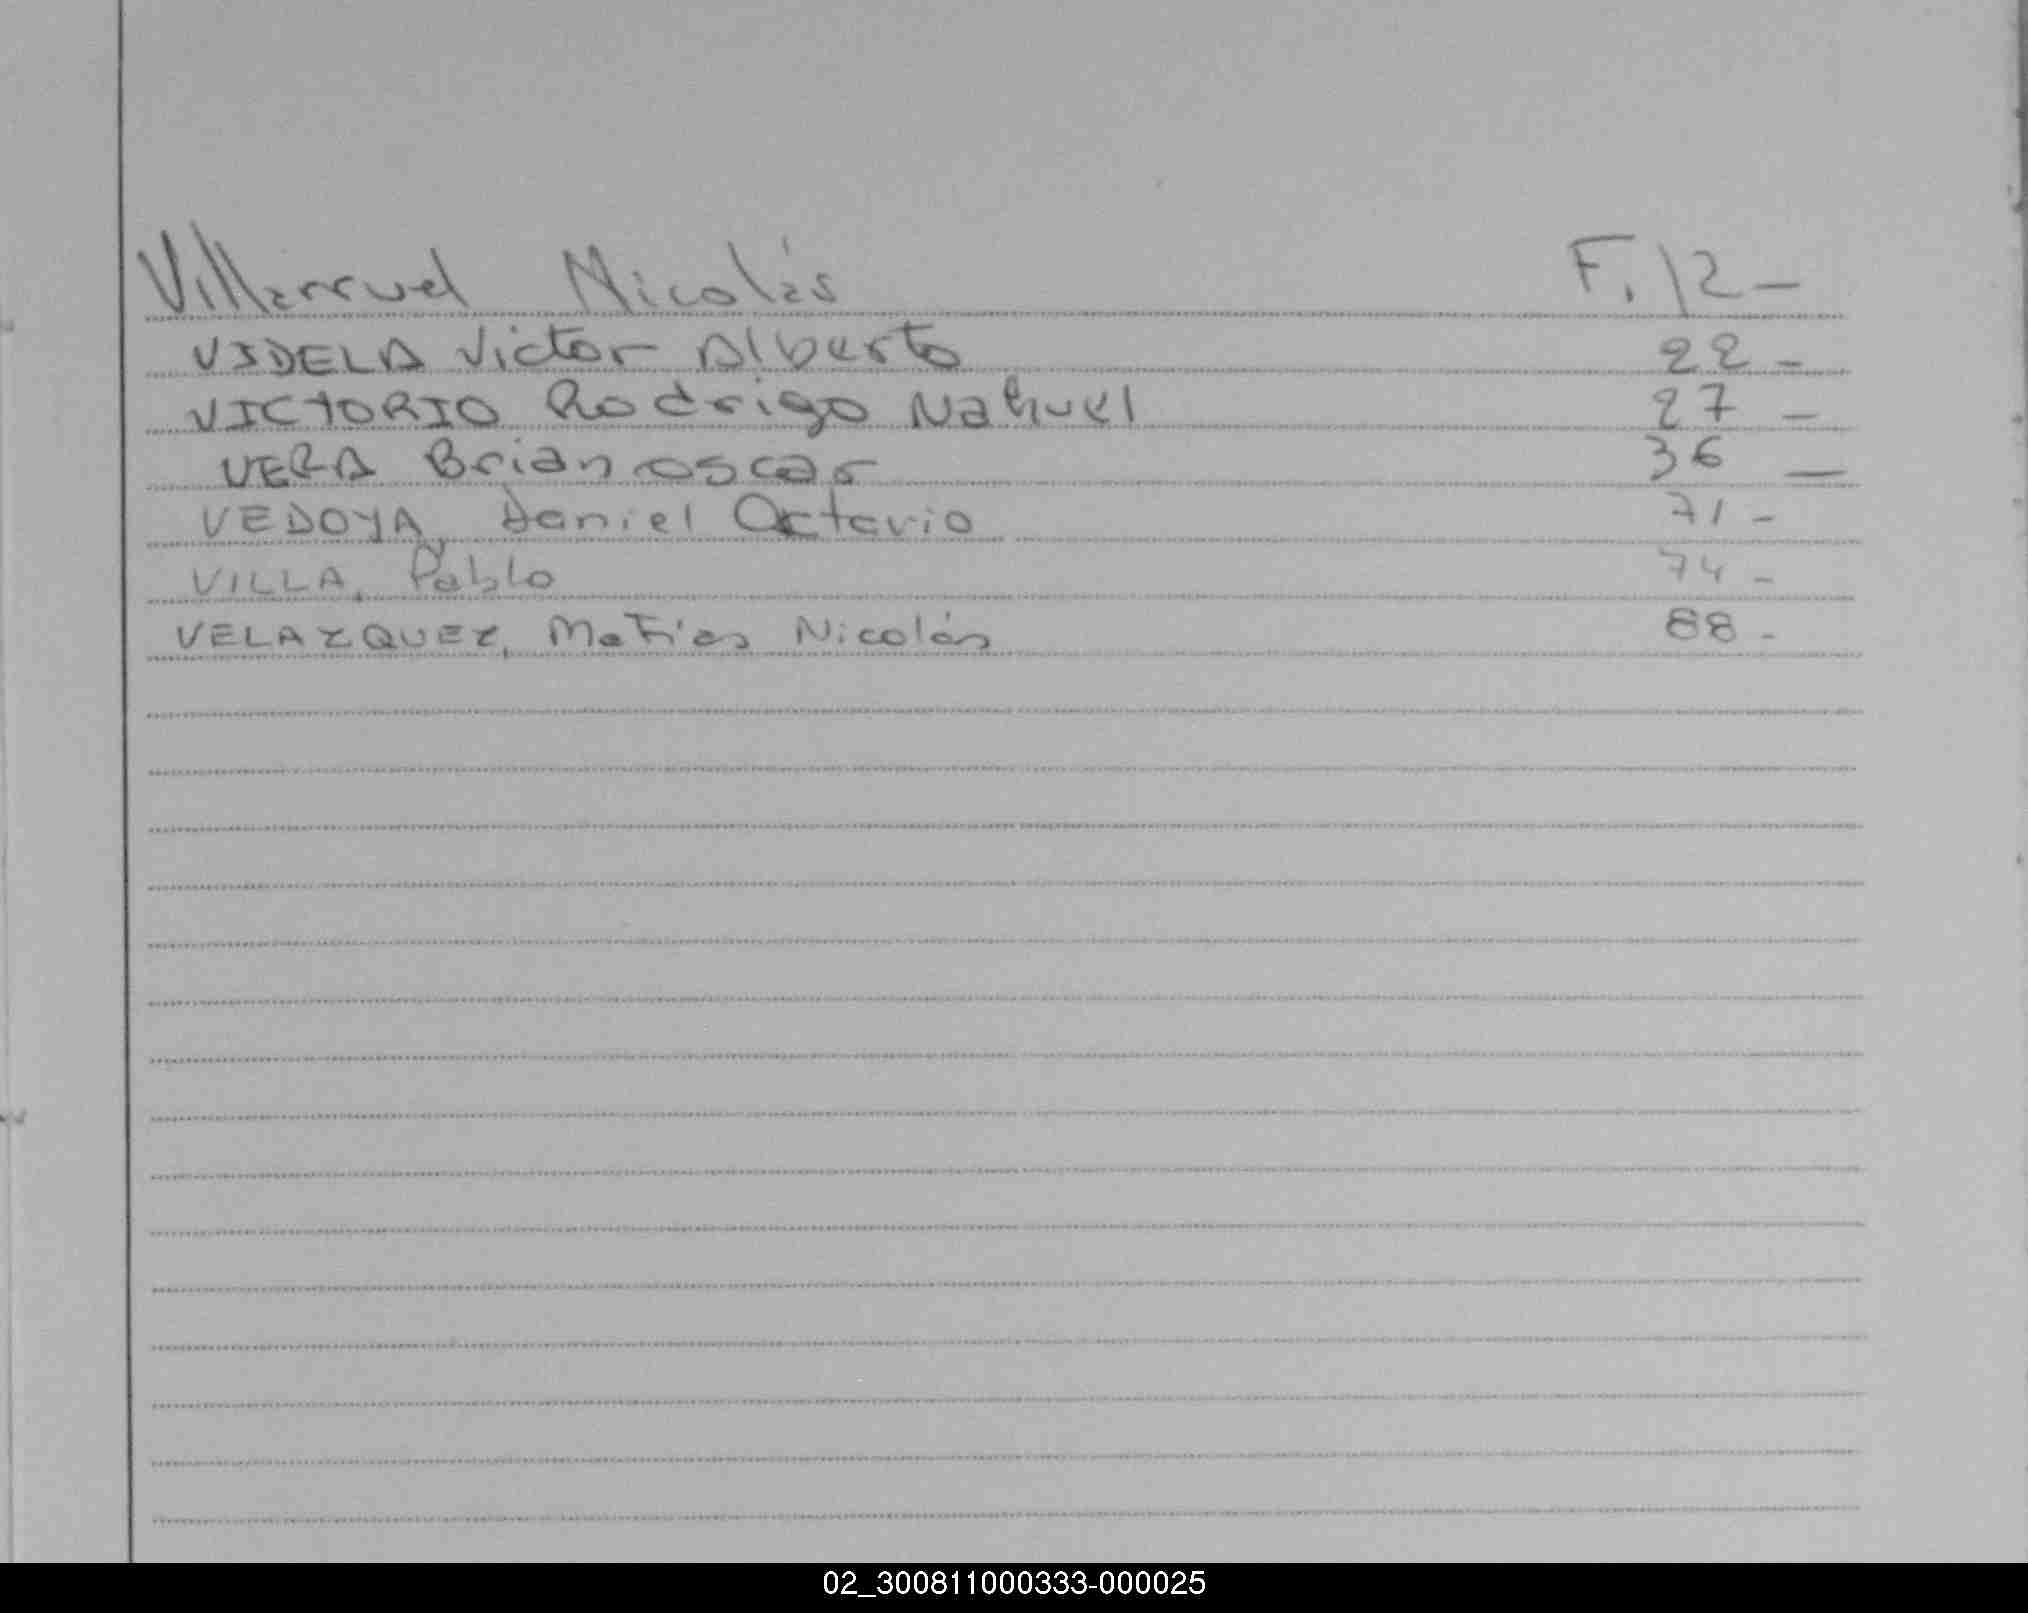 Villarruel Nicolás F. 12 -
VIDELA Victor Alberto 22 -
VICTORIO Rodrigo Nahuel 27 -
VERA Brian oscar 36 -
VEDOYA, Daniel Octavio 71 -
VILLA, Pablo 74 -
VELAZQUEZ, Matías Nicolás 88 -
02_300811000333-000025